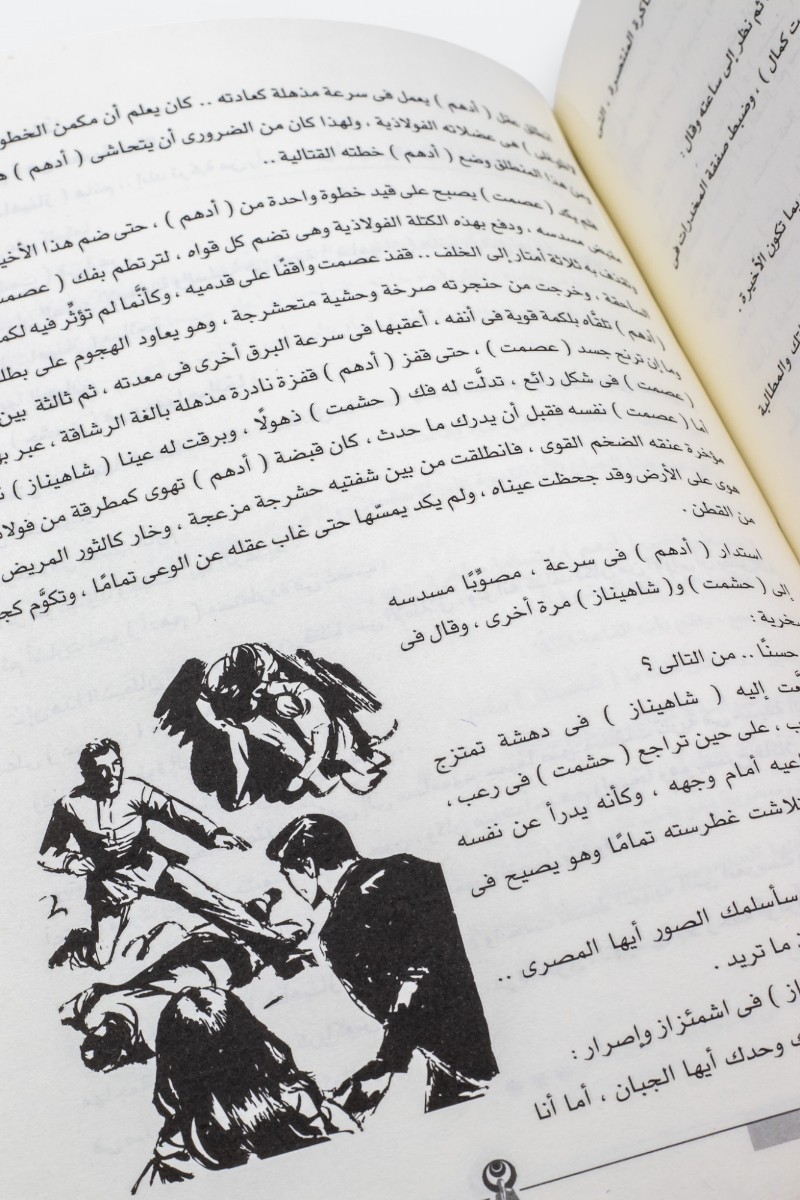 انطلق عقل ( أدهم ) يعمل فى سرعة مذهلة كعادته .. كان يعلم أن مكمن الخطو
هى عضلاته الفولاذية ، ولهذا كان من الضرورى أن يتحاشى ( أدهم )
ومن هذا المنطلق وضع ( أدهم ) خطته القتالية ..
فلم يكد ( عصمت ) يصبح على قيد خطوة واحدة من ( أدهم ) ، حتى ضم هذا الأخي
مقبض مسدسه ، ودفع بهذه الكتلة الفولاذية وهى تضم كل قواه ، لترتطم بفك ( عصم
وتقذف به ثلاثة أمتار إلى الخلف .. فقفز عصمت واقفًا على قدميه ، وكأنَّما لم تؤثِّر فيه لكم
الساحقة ، وخرجت من حنجرته صرخة وحشية متحشرجة ، وهو يعاود الهجوم على بطل
( أدهم ) تلقَّاه بلكمة قوية فى أنفه ، أعقبها فى سرعة البرق أخرى فى معدته ، ثم ثالثة بين
وما إن ترنح جسد ( عصمت ) ، حتى قفز ( أدهم ) قفزة نادرة مذهلة بالغة الرشاقة ، عبر به
( عصمت ) فى شكل رائع ، تدلَّت له فك ( حشمت ) ذهولًا ، وبرقت له عينا ( شاهيناز )
أما ( عصمت ) نفسه فقبل أن يدرك ما حدث ، كان قبضة ( أدهم ) تهوى كمطرقة من فولا
مؤخرة عنقه الضخم القوى ، فانطلقت من بين شفتيه حشرجة مزعجة ، وخار كالثور المريض
هوى على الأرض وقد جحظت عيناه ، ولم يكد يمسّها حتى غاب عقله عن الوعى تمامًا ، وتكوَّم كج
من القطن .
استدار ( أدهم ) فى سرعة ، مصوِّبًا مسدسه
إلى ( حشمت ) و( شاهيناز ) مرة أخرى ، وقال فى
سخرية :
حسنًا .. من التالى ؟
ت إليه ( شاهيناز ) فى دهشة تمتزج
ب ، على حين تراجع ( حشمت ) فى رعب ،
اعيه أمام وجهه ، وكأنه يدرأ عن نفسه
تلاشت غطرسته تمامًا وهو يصيح فى
سأسلمك الصور أيها المصرى ..
ما تريد .
از ) فى اشمئزاز وإصرار :
وحدك أيها الجبان ، أما أنا
ثم نظر إلى ساعته وقال :
ت كمال ) ، وضبط صفقة المخدرات فى
بما تكون الأخيرة .
والمطالبة